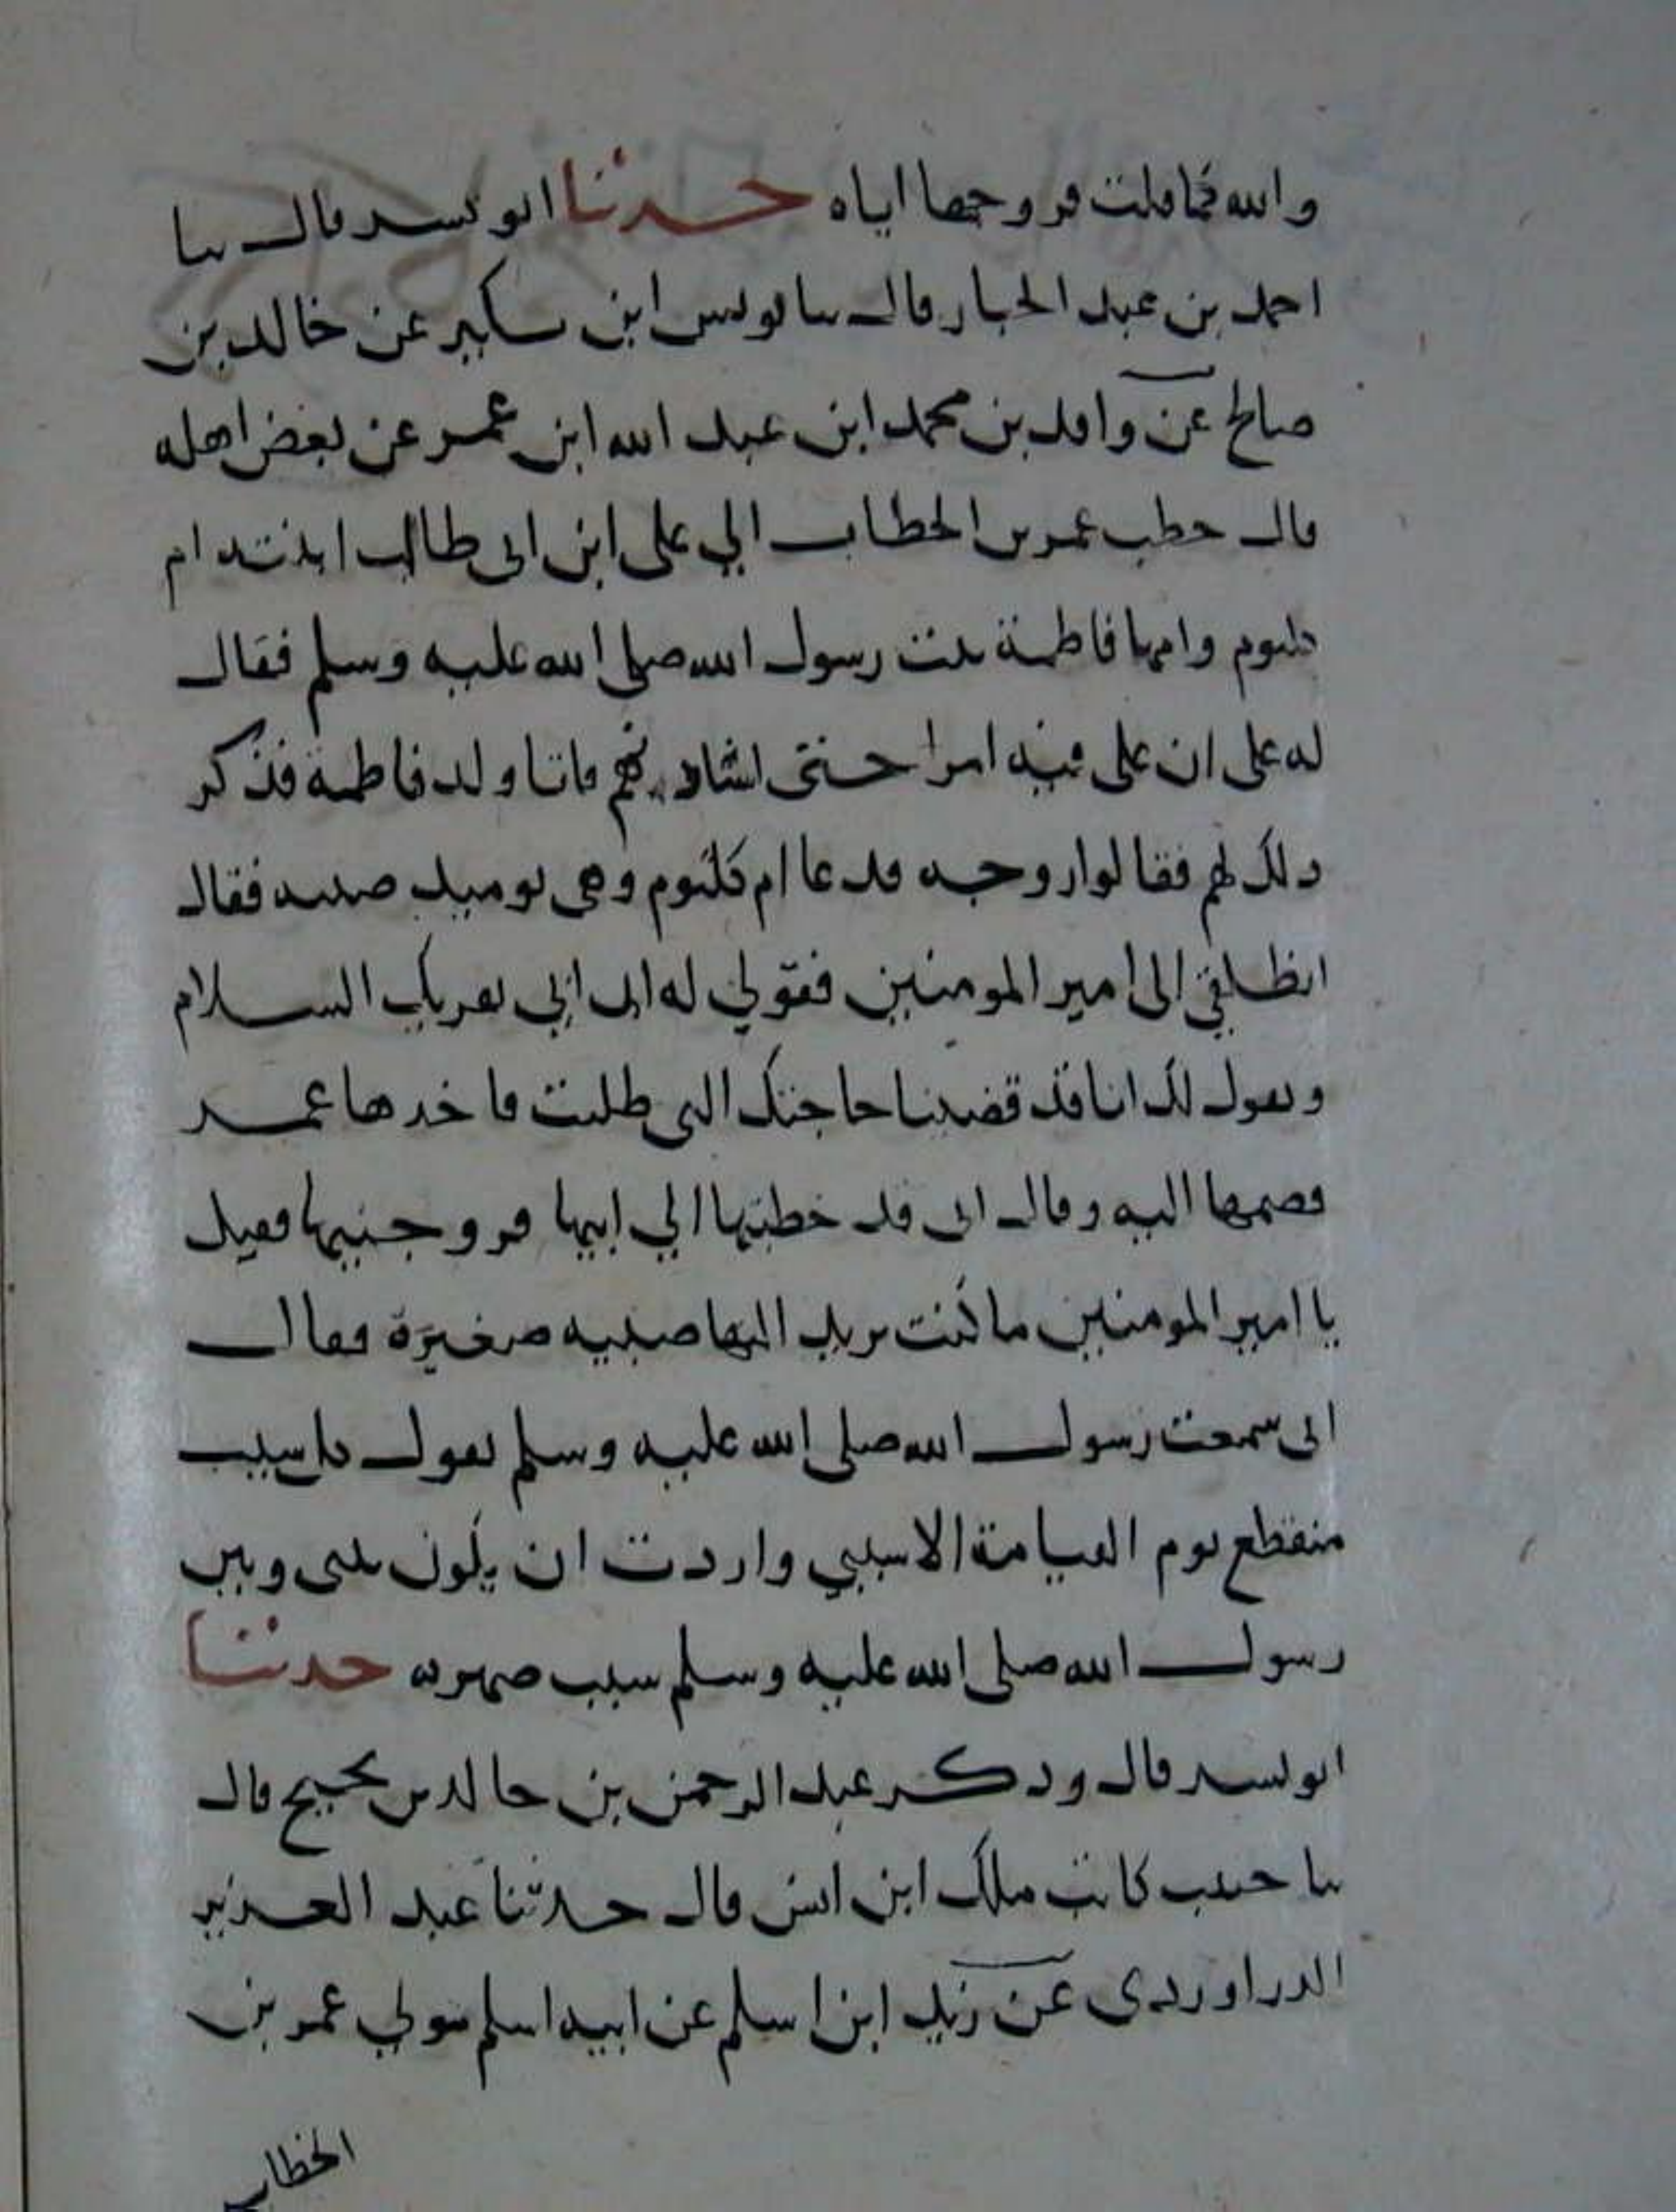 والله فما قلت فزوجها اياه حدثنا ابو بشر قال نا
احمد بن عبد الجبار قال نا يونس ابن بكير عن خالد بن
صالح عن واقد بن محمد ابن عبد الله ابن عمر عن بعض اهله
قال خطب عمر بن الخطاب الي علي ابن ابي طالب ابنته ام
كلثوم وامها فاطمة بنت رسول الله صلى الله عليه وسلم فقال
له علي ان علي فيه امرا حتى استاذنهم فاتا ولد فاطمة فذكر
ذلك لهم فقالوا زوجه فدعا ام كلثوم وهي يوميذ صبيه فقال
انطلقي الى امير المومنين فقولي له ان ابي يقريك السلام
ويقول لك انا قد قضينا حاجتك التي طلبت فاخذها عمر
فضمها اليه وقال اني قد خطبتها الي ابيها فزوجنيها فقيل
يا امير المومنين ما كنت تريد اليها صبيه صغيرة فقال
اني سمعت رسول الله صلى الله عليه وسلم يقول كل سبب
منقطع يوم القيامة الا سببي واردت ان يكون بيني وبين
رسول الله صلى الله عليه وسلم سبب صهره حدثنا
ابو بشر قال وذكر عبد الرحمن بن خالد بن نجيح قال
نا حبيب كاتب ملك ابن انس قال حدثنا عبد العزيز
الدراوردي عن زيد ابن اسلم عن ابيه اسلم مولي عمر بن
الخطاب